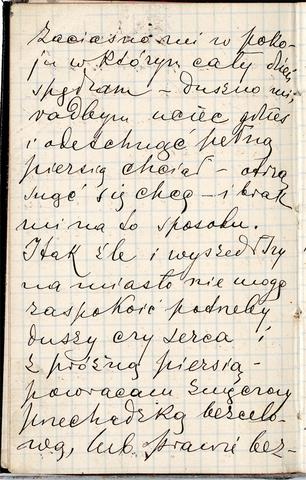 Zaciasno mi w poko-
ju w którym cały dzień
spędzam – duszno mi,
radbym uciec gdzieś
i odetchnąć pełną
piersią chciał – otrzą
snąć się chcę – i brak
mi na to sposobu.
I tak źle i wyszedłszy
na miasto nie mogę
zaspokoić potrzeby
duszy czy serca i
z próżną piersią –
powracam zmęczony
przechadzką bezcelo-
wą, lub prawie bez-